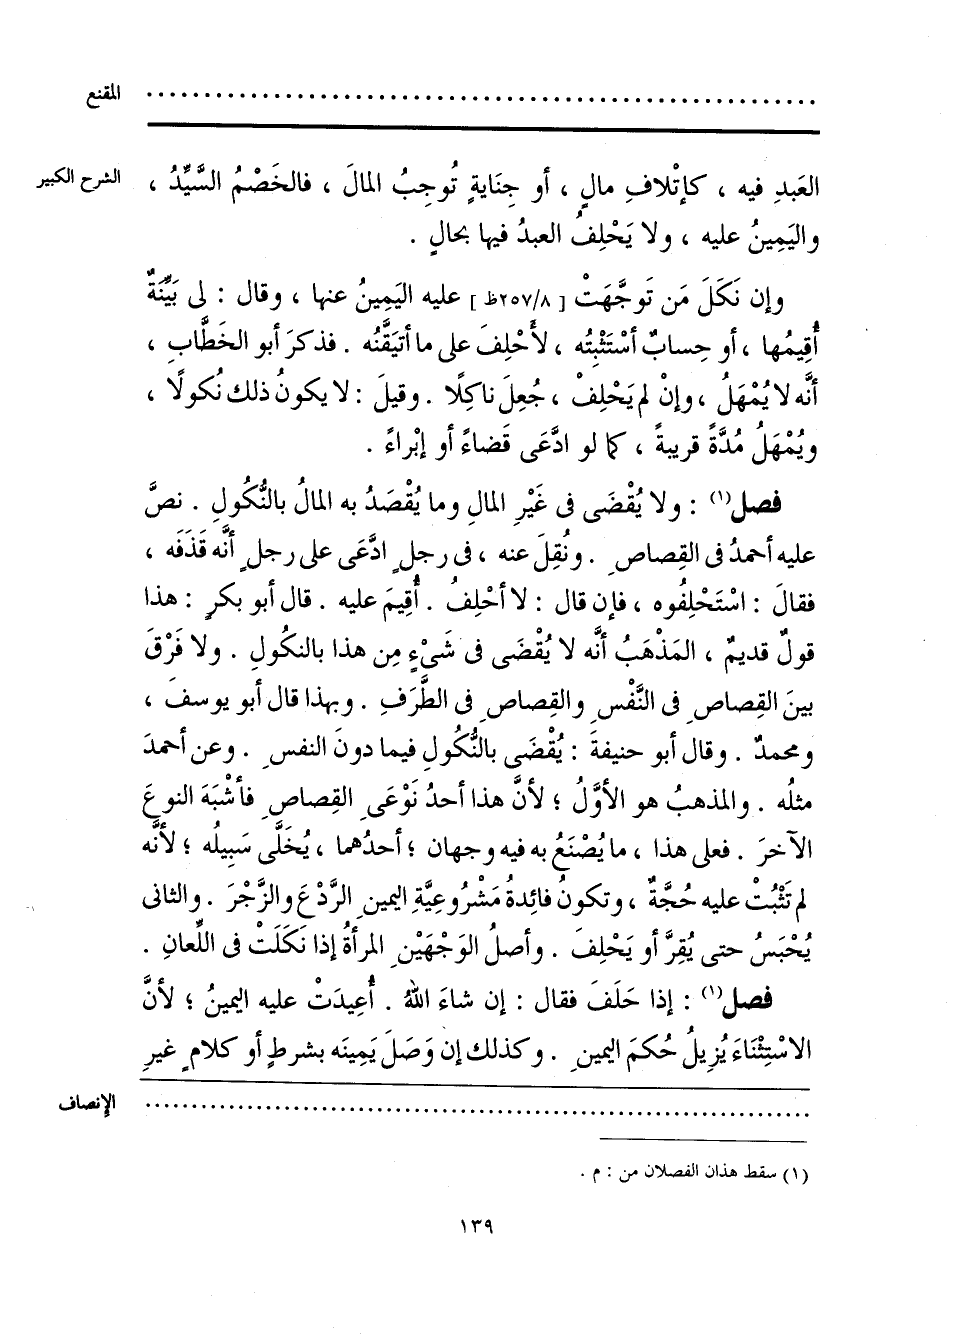 المقنع ..........
الشرح الكبير
العَبدِ فيه ، كإتْلافِ مالٍ ، أو جِنَايةٍ تُوجِبُ المالَ ، فالخَصْمُ السَّيِّدُ ،
واليَمِينُ عليه ، ولا يَحْلِفُ العبدُ فيها بحالٍ .
وإن نَكَلَ مَن تَوجَّهَتْ [ ٢٥٧/٨ظ ] عليه اليَمِينُ عنها ، وقال : لى بَيِّنَةٌ
أُقِيمُها ، أو حِسابٌ أسْتَثْبِتُه ، لأَحْلِفَ على ما أتيَقَّنُه . فذكرَ أبو الخَطَّابِ ،
أنَّه لا يُمْهَلُ ، وإنْ لم يَحْلِفْ ، جُعِلَ ناكِلًا . وقيلَ : لا يكونُ ذلك نُكولًا ،
ويُمْهَلُ مُدَّةً قريبةً ، كما لو ادَّعَى قَضاءً أو إبْراءً .
فصل(١) : ولا يُقْضَى فى غَيْرِ المالِ وما يُقْصَدُ به المالُ بالنُّكُولِ . نصَّ
عليه أحمدُ فى القِصاصِ . ونُقِلَ عنه ، فى رجلٍ ادَّعَى على رجلٍ أنَّه قَذَفَه ،
فقالَ : اسْتَحْلِفُوه ، فإن قال : لا أحْلِفُ . أُقِيمَ عليه . قال أبو بكرٍ : هذا
قولٌ قديمٌ ، المَذْهَبُ أنَّه لا يُقْضَى فى شَىْءٍ مِن هذا بالنكُولِ . ولا فَرْقَ
بينَ القِصاصِ فى النَّفْسِ والقِصاصِ فى الطَّرَفِ . وبهذا قال أبو يوسفَ ،
ومحمدٌ . وقال أبو حنيفةَ : يُقْضَى بالنُّكُولِ فيما دونَ النفسِ . وعن أحمدَ
مثلُه . والمذهبُ هو الأوَّلُ ؛ لأنَّ هذا أحدُ نَوْعَىِ القِصاصِ فأشْبَهَ النوعَ
الآخرَ . فعلى هذا ، ما يُصْنَعُ به فيه وجهان ؛ أحدُهما ، يُخَلَّى سَبِيلُه ؛ لأنَّه
لم تَثْبُتْ عليه حُجَّةٌ ، وتكونُ فائِدةُ مَشْرُوعِيَّةِ اليمينِ الرَّدْعَ والزَّجْرَ . والثانى
يُحْبَسُ حتى يُقِرَّ أو يَحْلِفَ . وأصلُ الوَجْهَيْنِ المرأةُ إذا نَكَلَتْ فى اللِّعانِ .
فصل(١) : إذا حَلَفَ فقال : إن شاءَ اللهُ . أُعِيدَتْ عليه اليمينُ ؛ لأنَّ
الاسْتِثْناءَ يُزِيلُ حُكمَ اليمينِ . وكذلك إن وَصَلَ يَمِينَه بشرطٍ أو كلامٍ غيرِ
الإنصاف ..........
(١) سقط هذان الفصلان من : م .
١٣٩